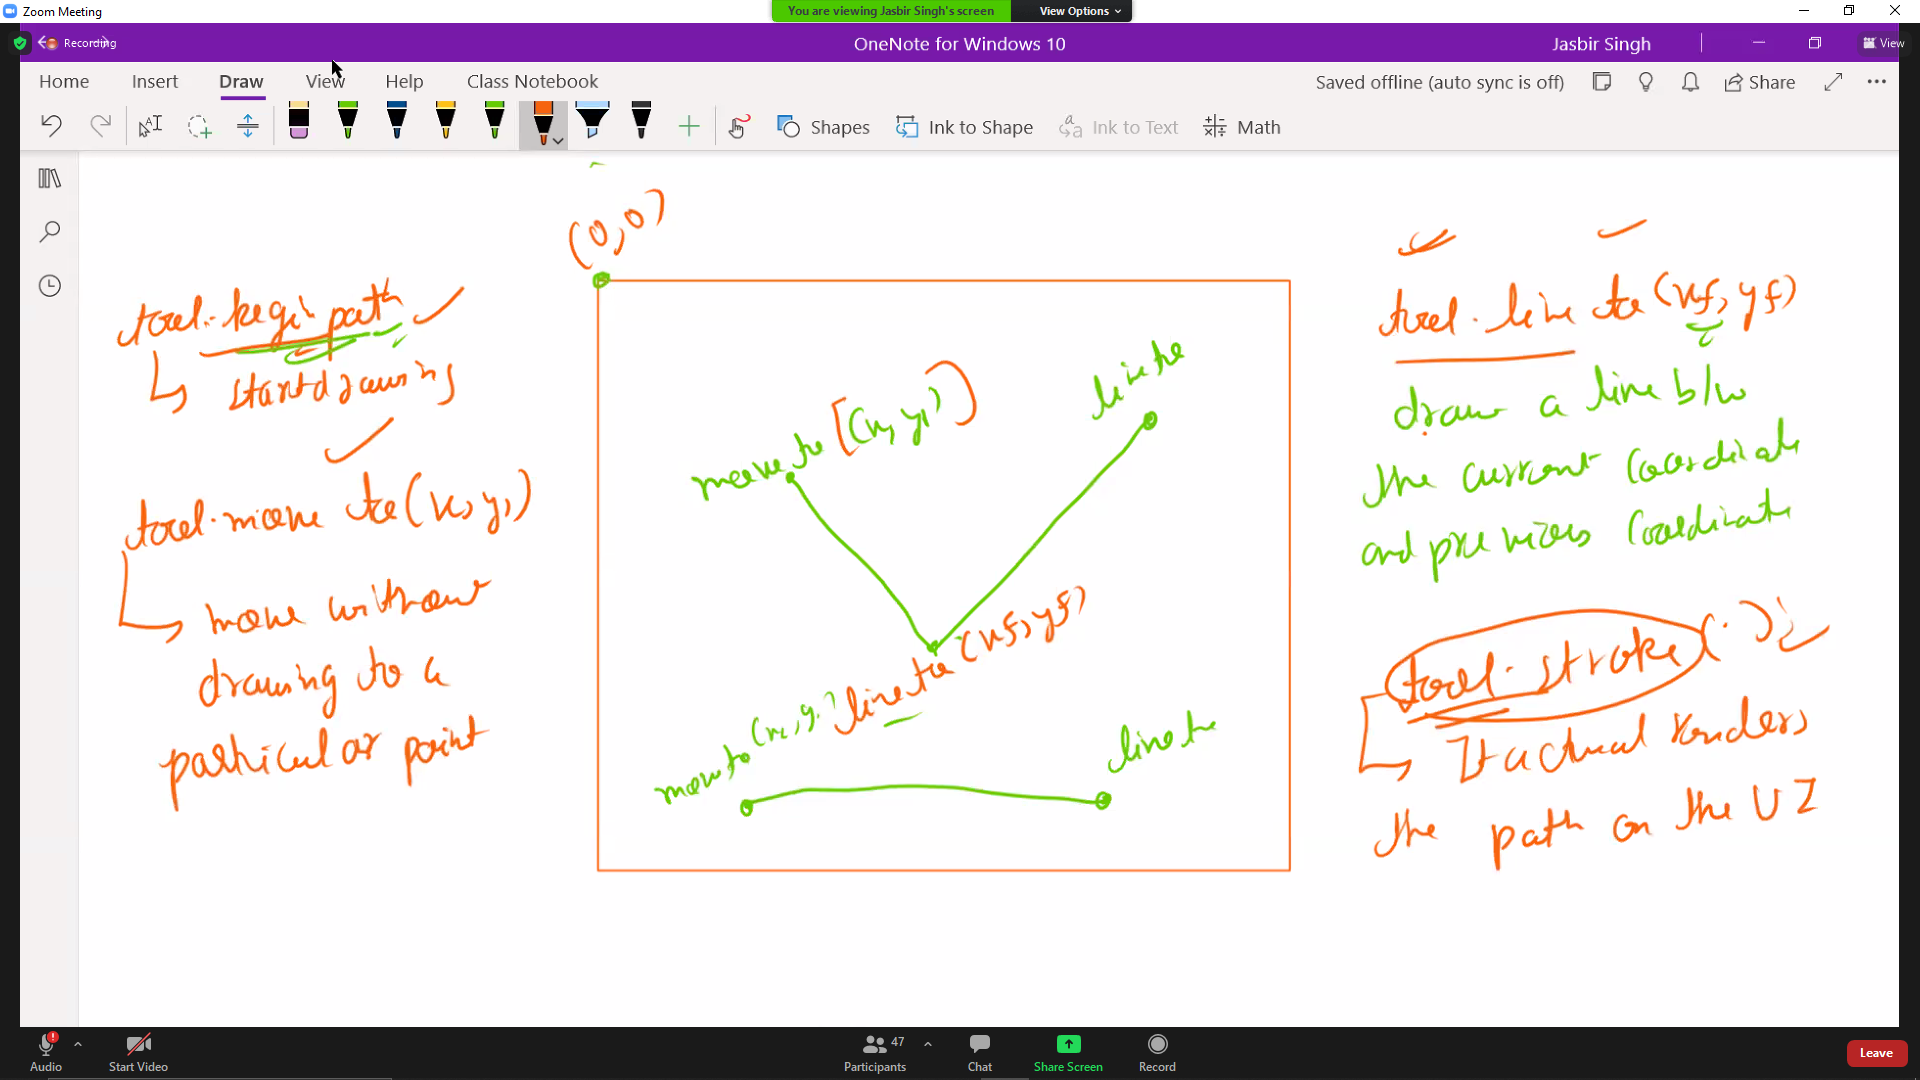 Zoom Meeting
You are viewing Jasbir Singh's screen
View Options
Recording
OneNote for Windows 10
Jasbir Singh
View
Home
Insert
Draw
View
Help
Class Notebook
Saved offline (auto sync is off)
Share
Shapes
Ink to Shape
Ink to Text
Math
(0,0)
tool.beginpath
start drawing
tool.move to(x,y,)
move without
drawing to a
particular point
move to [(x, y,)]
line to
line to (xf, yf)
move to
line to
tool.line to (xf, yf)
draw a line b/w
the current coordinate
and previous coordinate
tool.stroke(.);
It actual renders
the path on the UI
Audio
Start Video
47
Participants
Chat
Share Screen
Record
Leave